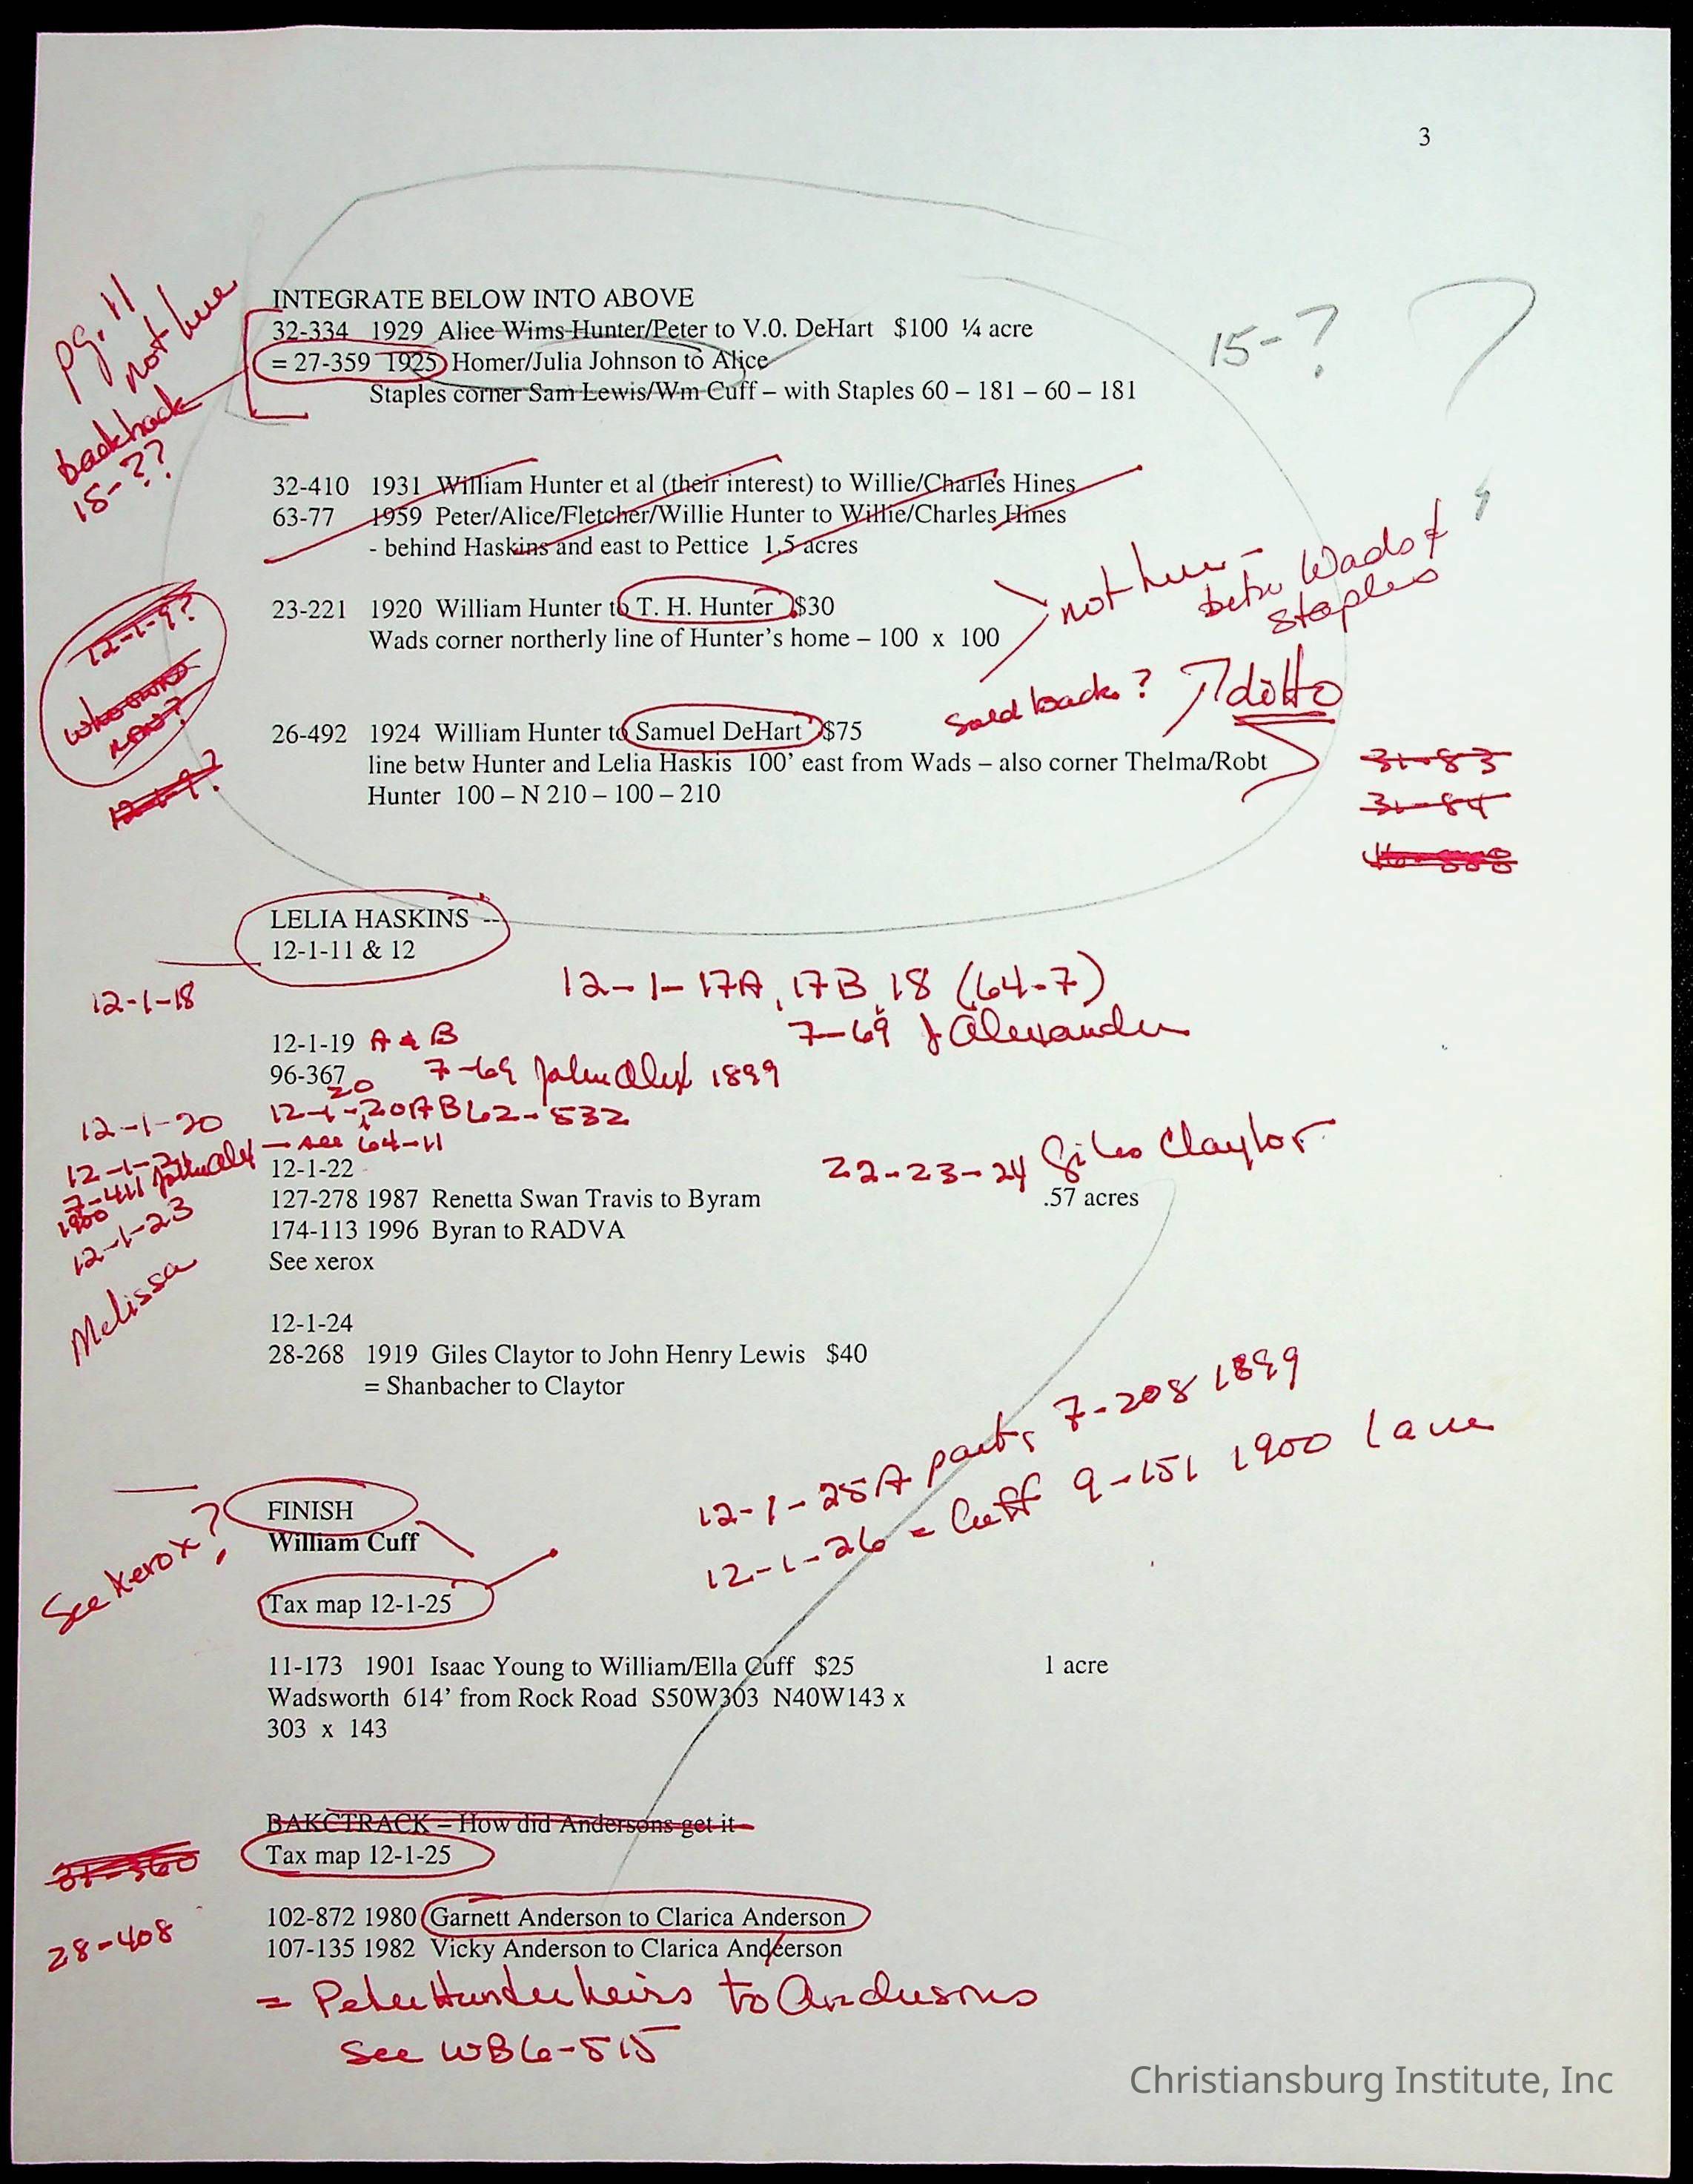 3
pg. 11
not here
INTEGRATE BELOW INTO ABOVE
32-334 1929 Alice Wims-Hunter/Peter to V.0. DeHart $100 ¼ acre
= 27-359 1925 Homer/Julia Johnson to Alice
Staples corner Sam Lewis/Wm Cuff – with Staples 60 – 181 – 60 – 181
15-?
?
15-??
32-410 1931 William Hunter et al (their interest) to Willie/Charles Hines
63-77 1959 Peter/Alice/Fletcher/Willie Hunter to Willie/Charles Hines
- behind Haskins and east to Pettice 1.5 acres
not here –
betw Wads &
Staples
12-1-9?
23-221 1920 William Hunter to T. H. Hunter $30
Wads corner northerly line of Hunter's home – 100 x 100
who owns
now?
sold back?
ditto
26-492 1924 William Hunter to Samuel DeHart $75
line betw Hunter and Lelia Haskis 100' east from Wads – also corner Thelma/Robt
Hunter 100 – N 210 – 100 – 210
12-1-9?
31-83
31-84
LELIA HASKINS --
12-1-11 & 12
12-1-18
12-1-17A, 17B, 18 (64-7)
7-69 J Alexander
12-1-19 A & B
96-367
7-69 John Alex 1899
20
12-1-20
12-1-20A B 62-532
12-1-21 – see 64-11
7-411 John Alex
1900
12-1-22
22-23-24 Giles Claytor
127-278 1987 Renetta Swan Travis to Byram .57 acres
174-113 1996 Byran to RADVA
See xerox
12-1-23
Melissa
12-1-24
28-268 1919 Giles Claytor to John Henry Lewis $40
= Shanbacher to Claytor
12-1-25A part, 7-208 1899
12-1-26 = Cuff 9-151 1900 Lane
See Xerox?
FINISH
William Cuff
Tax map 12-1-25
11-173 1901 Isaac Young to William/Ella Cuff $25 1 acre
Wadsworth 614' from Rock Road S50W303 N40W143 x
303 x 143
BAKCTRACK – How did Andersons get it
Tax map 12-1-25
28-408
102-872 1980 Garnett Anderson to Clarica Anderson
107-135 1982 Vicky Anderson to Clarica Andeerson
= Peter Hunter heirs to Andersons
See WB6-515
Christiansburg Institute, Inc